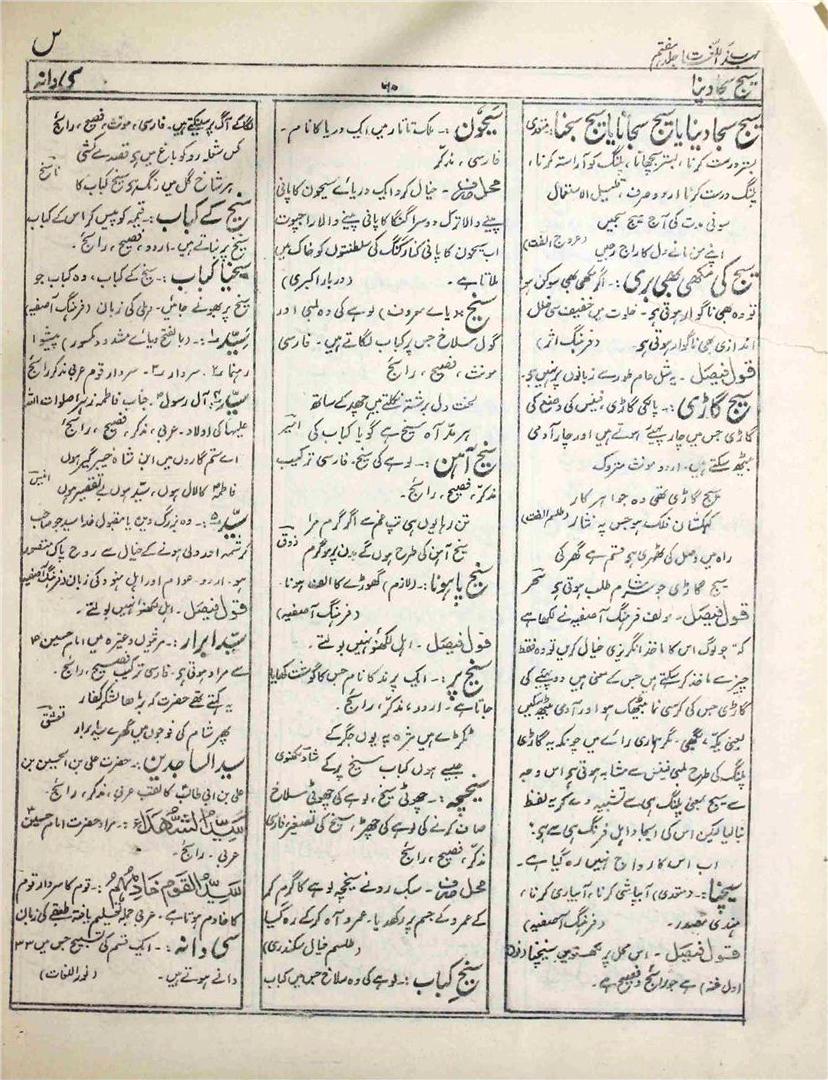 مہذب اللغت جلد ہفتم
س
سیج سجا دینا
۶۰
سی دانہ
سیج سجا دینا یا سیج سجانا یا سیج سجنا :۔ متعدی
بستر درست کرنا، بستر بچھانا، پلنگ کو آراستہ کرنا،
پلنگ درست کرنا اردو صرف، قلیل الاستعمال
سونی مدت کی آج سیج سجیں
اپنے من مانے دل کا راج رجیں (عروج الفت)
سیج کی مکھی بھی بری :۔ اگر مکھی بھی سوکن ہو
تو وہ بھی ناگوار ہوتی ہے۔ خلوت میں خفیف سی خلل
اندازی بھی ناگوار ہوتی ہے۔ (فرہنگ اثر)
قول فیصل۔ یہ مثل عام طور سے زبانوں پر نہیں ہے۔
سیج گاڑی :۔ پالکی گاڑی نیفس کی وضع کی
گاڑی جس میں چار پہیے ہوتے ہیں اور چار آدمی
بیٹھ سکتے ہیں۔ اردو مونث متروک
سیج گاڑی تھی وہ جواہر کار
کہکشان فلک ہو جس پہ نثار (طلسم الفت)
راہ میں وصل کی ٹھہری ہے قسم ہے گھر کی
سیج گاڑی جو شرم طلب ہوتی ہے سحر
قول فیصل۔ مولف فرہنگ آصفیہ نے لکھا ہے
کہ جو لوگ اس کا ماخذ انگریزی خیال کریں تو وہ فقط
چیز سے ماخذ کر سکتے ہیں جس کے معنی ہیں دو پہیے کی
گاڑی جس کی کرسی نما بیٹھک ہو اور آدمی بیٹھ سکیں
یعنی یکہ، بگھی۔ مگر ہماری رائے میں چونکہ یہ گاڑی
پلنگ کی طرح لمبی نیفس سے مشابہ ہوتی ہے اس وجہ
سے سیج بمعنی پلنگ ہی سے تشبیہ دے کر یہ لفظ
بنا لیا لیکن اس کی ایجاد اہل فرنگ ہی سے ہے؛
اب اس کا رواج نہیں رہ گیا ہے۔
سیچنا :۔ (متعدی) آبپاشی کرنا، آبیاری کرنا،
ہندی مصدر۔ (فرہنگ آصفیہ)
قول فیصل۔ اس محل پر لکھنؤ میں سینچنا (نون
اول غنہ) ہے جو رائج و فصیح ہے۔
سیحون :۔ ملک تاتار میں ایک دریا کا نام۔
فارسی، مذکر
محل صرف۔ خیال کرو ایک دریائے سیحون کا پانی
پینے والا ترک دوسرا گنگا کا پانی پینے والا راجپوت
اب سیحون کا پانی کنار گنگ کی سلطنتوں کو خاک میں
ملاتا ہے۔ (دربار اکبری)
سیخ (بیائے معروف) لوہے کی وہ لمبی اور
گول سلاخ جس پر کباب لگاتے ہیں۔ فارسی
مونث، فصیح، رائج
لخت دل برشتہ نکلتے ہیں چھد کے ساتھ
ہر مدّ آہ سیخ ہے گویا کباب کی اسیر
سیخ آہن :۔ لوہے کی سیخ۔ فارسی ترکیب
مذکر، فصیح، رائج۔
تن رہا یوں ہی تپ غم سے اگر گرم مرا
سیخ آہن کی طرح ہوں گے بدن پر مو گرم ذوق
سیخ پا ہونا :۔ (لازم) گھوڑے کا الف ہونا۔
(فرہنگ آصفیہ)
قول فیصل۔ اہل لکھنؤ نہیں بولتے۔
سیخ پر :۔ ایک پرند کا نام جس کا گوشت کھایا
جاتا ہے۔ اردو، مذکر، رائج۔
ٹکڑے ہیں مژہ پہ یوں جگر کے
جیسے ہوں کباب سیخ پر کے شاد لکھنوی
سیخچہ :۔ چھوٹی سیخ، لوہے کی چھوٹی سلاخ
صاف کرنے کی لوہے کی چھڑ، سیخ کی تصغیر فارسی
مذکر، فصیح، رائج
محل صرف۔ سبک رو نے سیخچہ لوہے کا گرم کر
کے عمرو کے جسم پر رکھ دیا۔ عمرو آہ کر کے رہ گیا
(طلسم خیال سکندری)
سیخ کباب :۔ لوہے کی وہ سلاخ جس میں کباب
لگا کے آگ پر سینکتے ہیں۔ فارسی، مونث، فصیح، رائج
کس شعلہ رو کو باغ میں ہے قصد مے کشی
ہر شاخ گل میں رنگ ہے سیخ کباب کا ناسخ
سیخ کے کباب :۔ قیمہ کو پیس کر اس کے کباب
سیخ پر بناتے ہیں۔ اردو، فصیح، رائج۔
سیخیا کباب :۔ سیخ کے کباب، وہ کباب جو
سیخ پر بھونے جائیں۔ دہلی کی زبان (فرہنگ آصفیہ)
سیّد ۱ :۔ (بالفتح و یائے مشدد و مکسور) پیشوا
رہنما ۲۔ سردار ۳۔ سردار قوم عربی مذکر رائج
سیّد ۴ :۔ آل رسول، جناب فاطمہ زہرا صلوات اللہ
علیہا کی اولاد۔ عربی، مذکر، فصیح، رائج
اے ستم گارو میں ابن شاہ خیبر گیر ہوں
فاطمہ کا لال ہوں، سید ہوں بے تقصیر ہوں انیس
سیّد ۵ :۔ وہ بزرگ دین یا مقبول خدا سید جو صاحب
کرشمہ اور ولی ہونے کے خیال سے روح پاک متصور
ہو۔ اردو۔ عوام اور اہل ہنود کی زبان (فرہنگ آصفیہ)
قول فیصل۔ اہل لکھنؤ نہیں بولتے۔
سید ابرار :۔ مرثیوں وغیرہ میں امام حسینؑ
سے مراد ہوتی ہے۔ فارسی ترکیب، فصیح، رائج۔
یہ کہتے تھے حضرت کہ بڑھا لشکر کفار
پھر شام کی فوجوں میں گھرے سید ابرار تعشق
سید الساجدین :۔ حضرت علی بن الحسین بن
علی بن ابی طالب کا لقب عربی، مذکر، رائج۔
سید الشہداء :۔ مراد حضرت امام حسینؑ
عربی۔ رائج۔
سید القوم خادمہم :۔ قوم کا سردار قوم
کا خادم ہوتا ہے۔ عربی جملہ تعلیم یافتہ طبقے کی زبان
سی دانہ :۔ ایک قسم کی تسبیح جس میں ۳۳
دانے ہوتے ہیں۔ (نور اللغات)